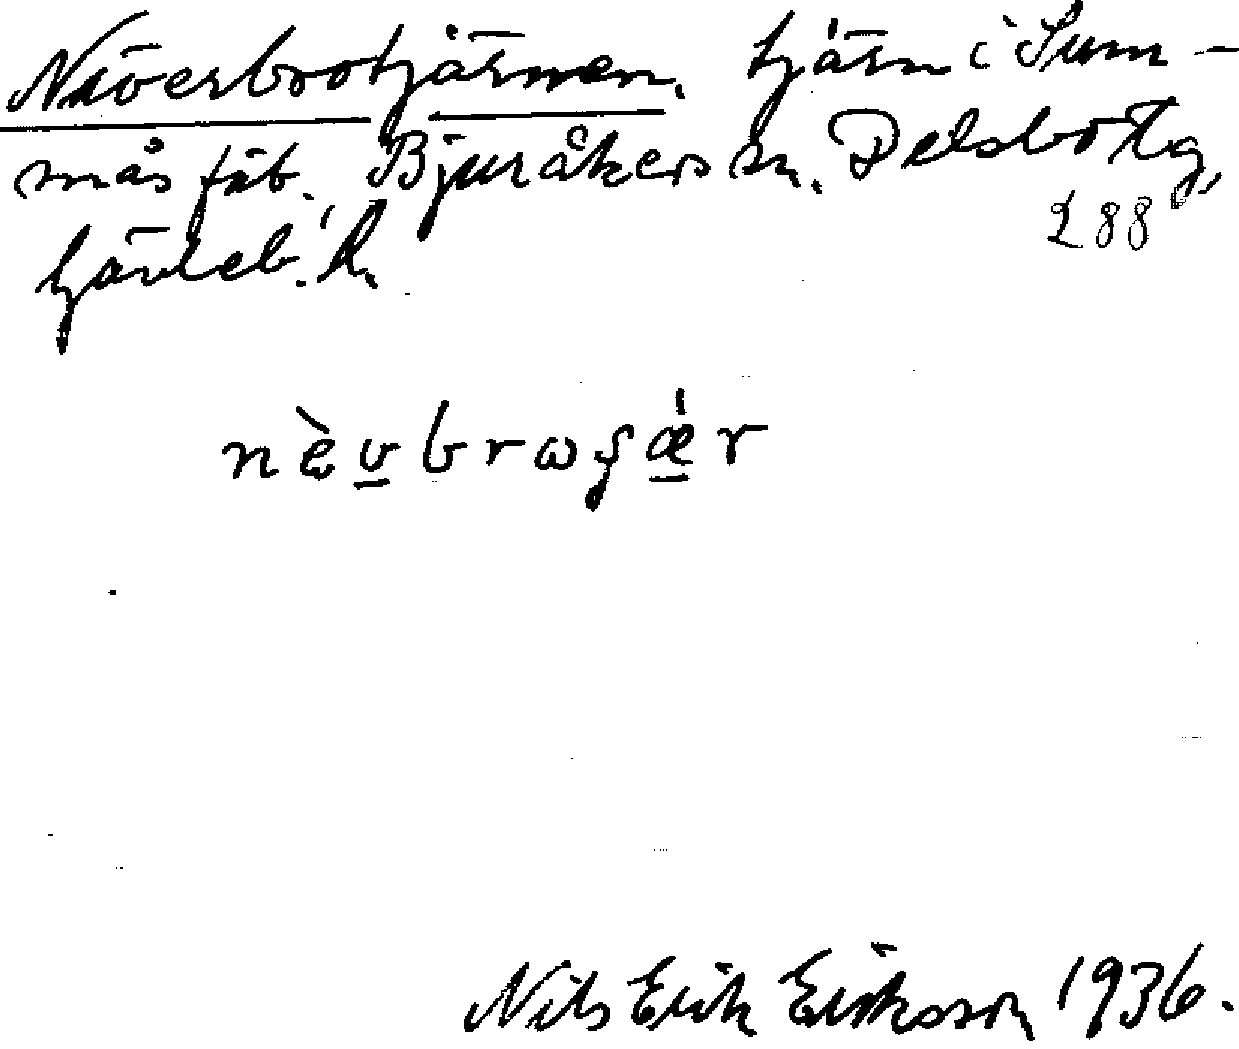 Näverbrotjärnen. tjärn i Sum-
mås fäb. Bjuråkers sn. Delsbo tg,
Gävleb. l.
288
nèvbrωʂǽr
Nils Erik Eriksson 1936.